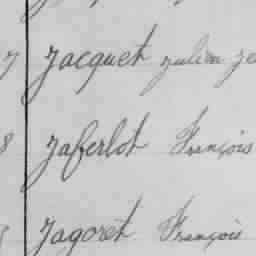 7 Jacquet Julien Je
8 Jaferlot François
Jagoret François